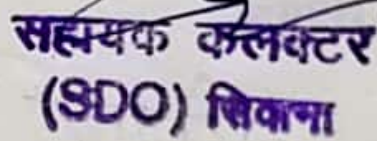 सहायक कलक्टर
(SDO) सिवाना